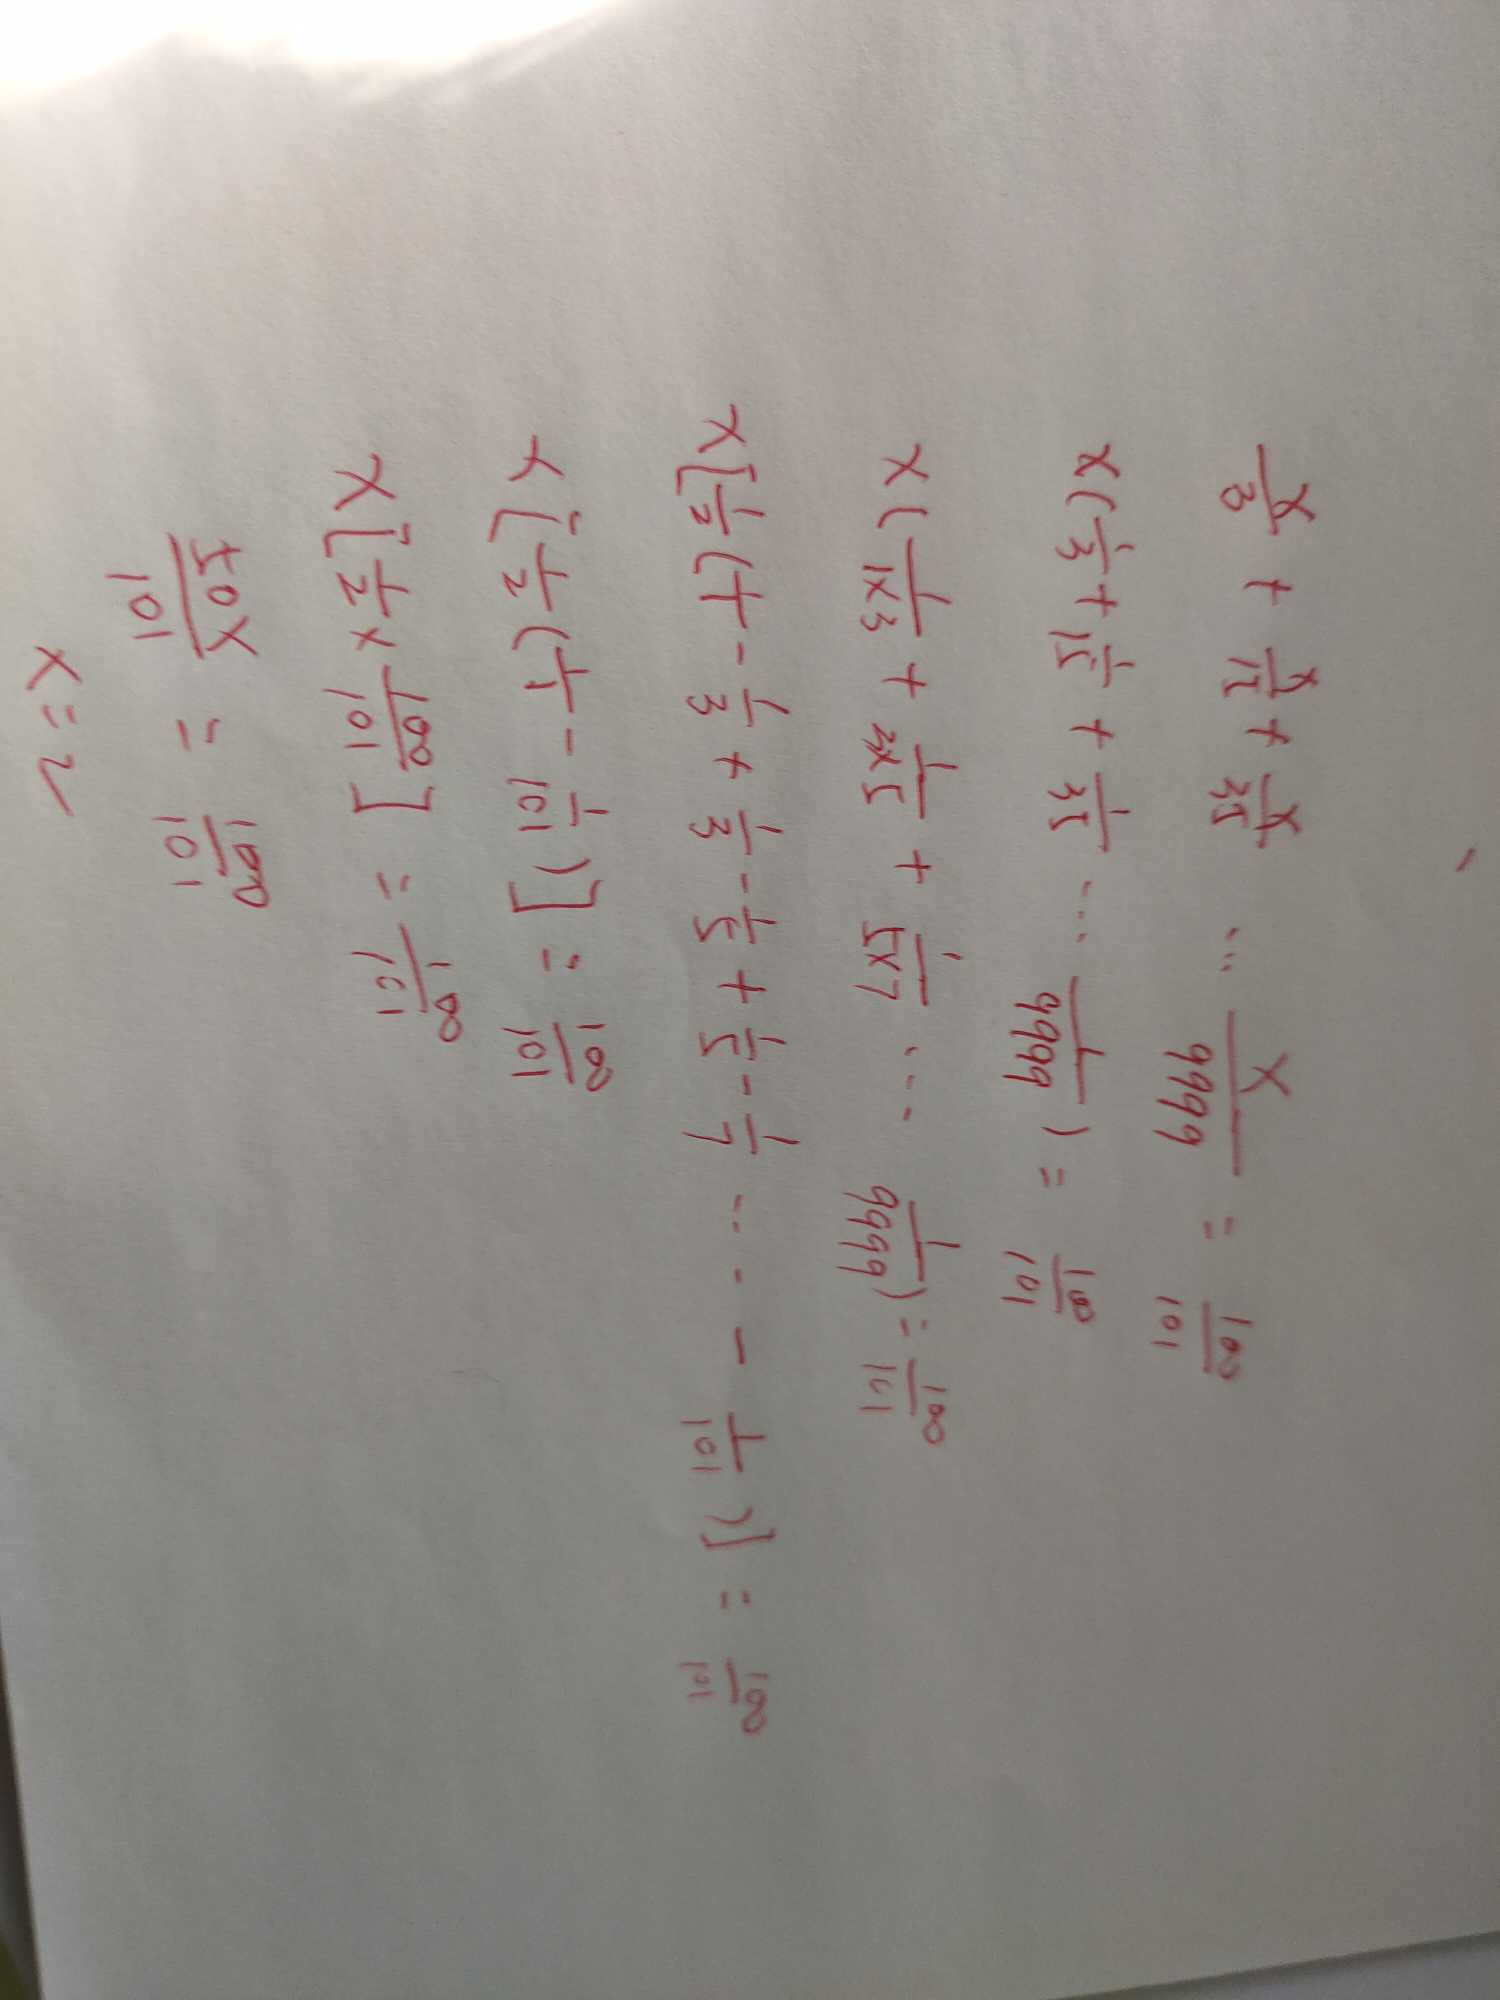 x/3 + x/15 + x/35 ... x/9999 = 100/101
x(1/3 + 1/15 + 1/35 ... 1/9999) = 100/101
x(1/1×3 + 1/3×5 + 1/5×7 ... 1/9999) = 100/101
x[1/2(1/1 - 1/3 + 1/3 - 1/5 + 1/5 - 1/7 ... - - 1/101)] = 100/101
x[1/2(1/1 - 1/101)] = 100/101
x[1/2 × 100/101] = 100/101
50x/101 = 100/101
x=2